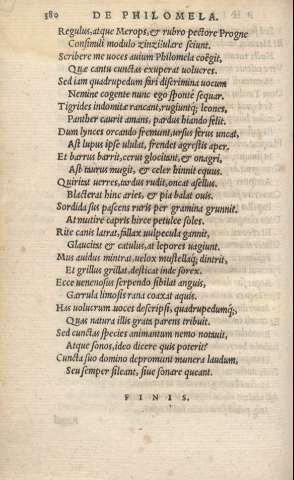 380 DE PHILOMELA.
Regulus, atque Merops, & rubro pectore Progne
Consimili modulo zinzilulare sciunt.
Scribere me uoces auium Philomela coëgit,
Quæ cantu cunctas exuperat uolucres.
Sed iam quadrupedum fari discrimina uocum
Nemine cogente nunc ego sponte sequar.
Tigrides indomitæ rancant, rugiuntq; leones,
Panther caurit amans, pardus hiando felit.
Dum lynces orcando fremunt, ursus ferus uncat,
Ast lupus ipse ululat, frendes agrestis aper.
Et barrus barrit, cerui glocitant, & onagri,
Ast taurus mugit, & celer hinnit equus.
Quiritat uerres, tardus rudit, oncat asellus.
Blacterat hinc aries, & pia balat ouis.
Sordida sus pascens ruris per gramina grunnit.
At mutire capris hirce petulce soles.
Rite canis latrat, fallax uulpecula gannit,
Glaucitat & catulus, at lepores uagiunt.
Mus auidus mintrat, uelox mustellaq; dintrit,
Et grillus grillat, desticat inde sorex.
Ecce uenenosus serpendo sibilat anguis,
Garrula limosis rana coaxat aquis.
Has uolucrum uoces descripsi, quadrupedumq;,
Quas natura illis grata parens tribuit.
Sed cunctas species animantum nemo notauit,
Atque sonos, ideo dicere quis poterit?
Cuncta suo domino depromunt munera laudum,
Seu semper sileant, siue sonare queant.
FINIS.